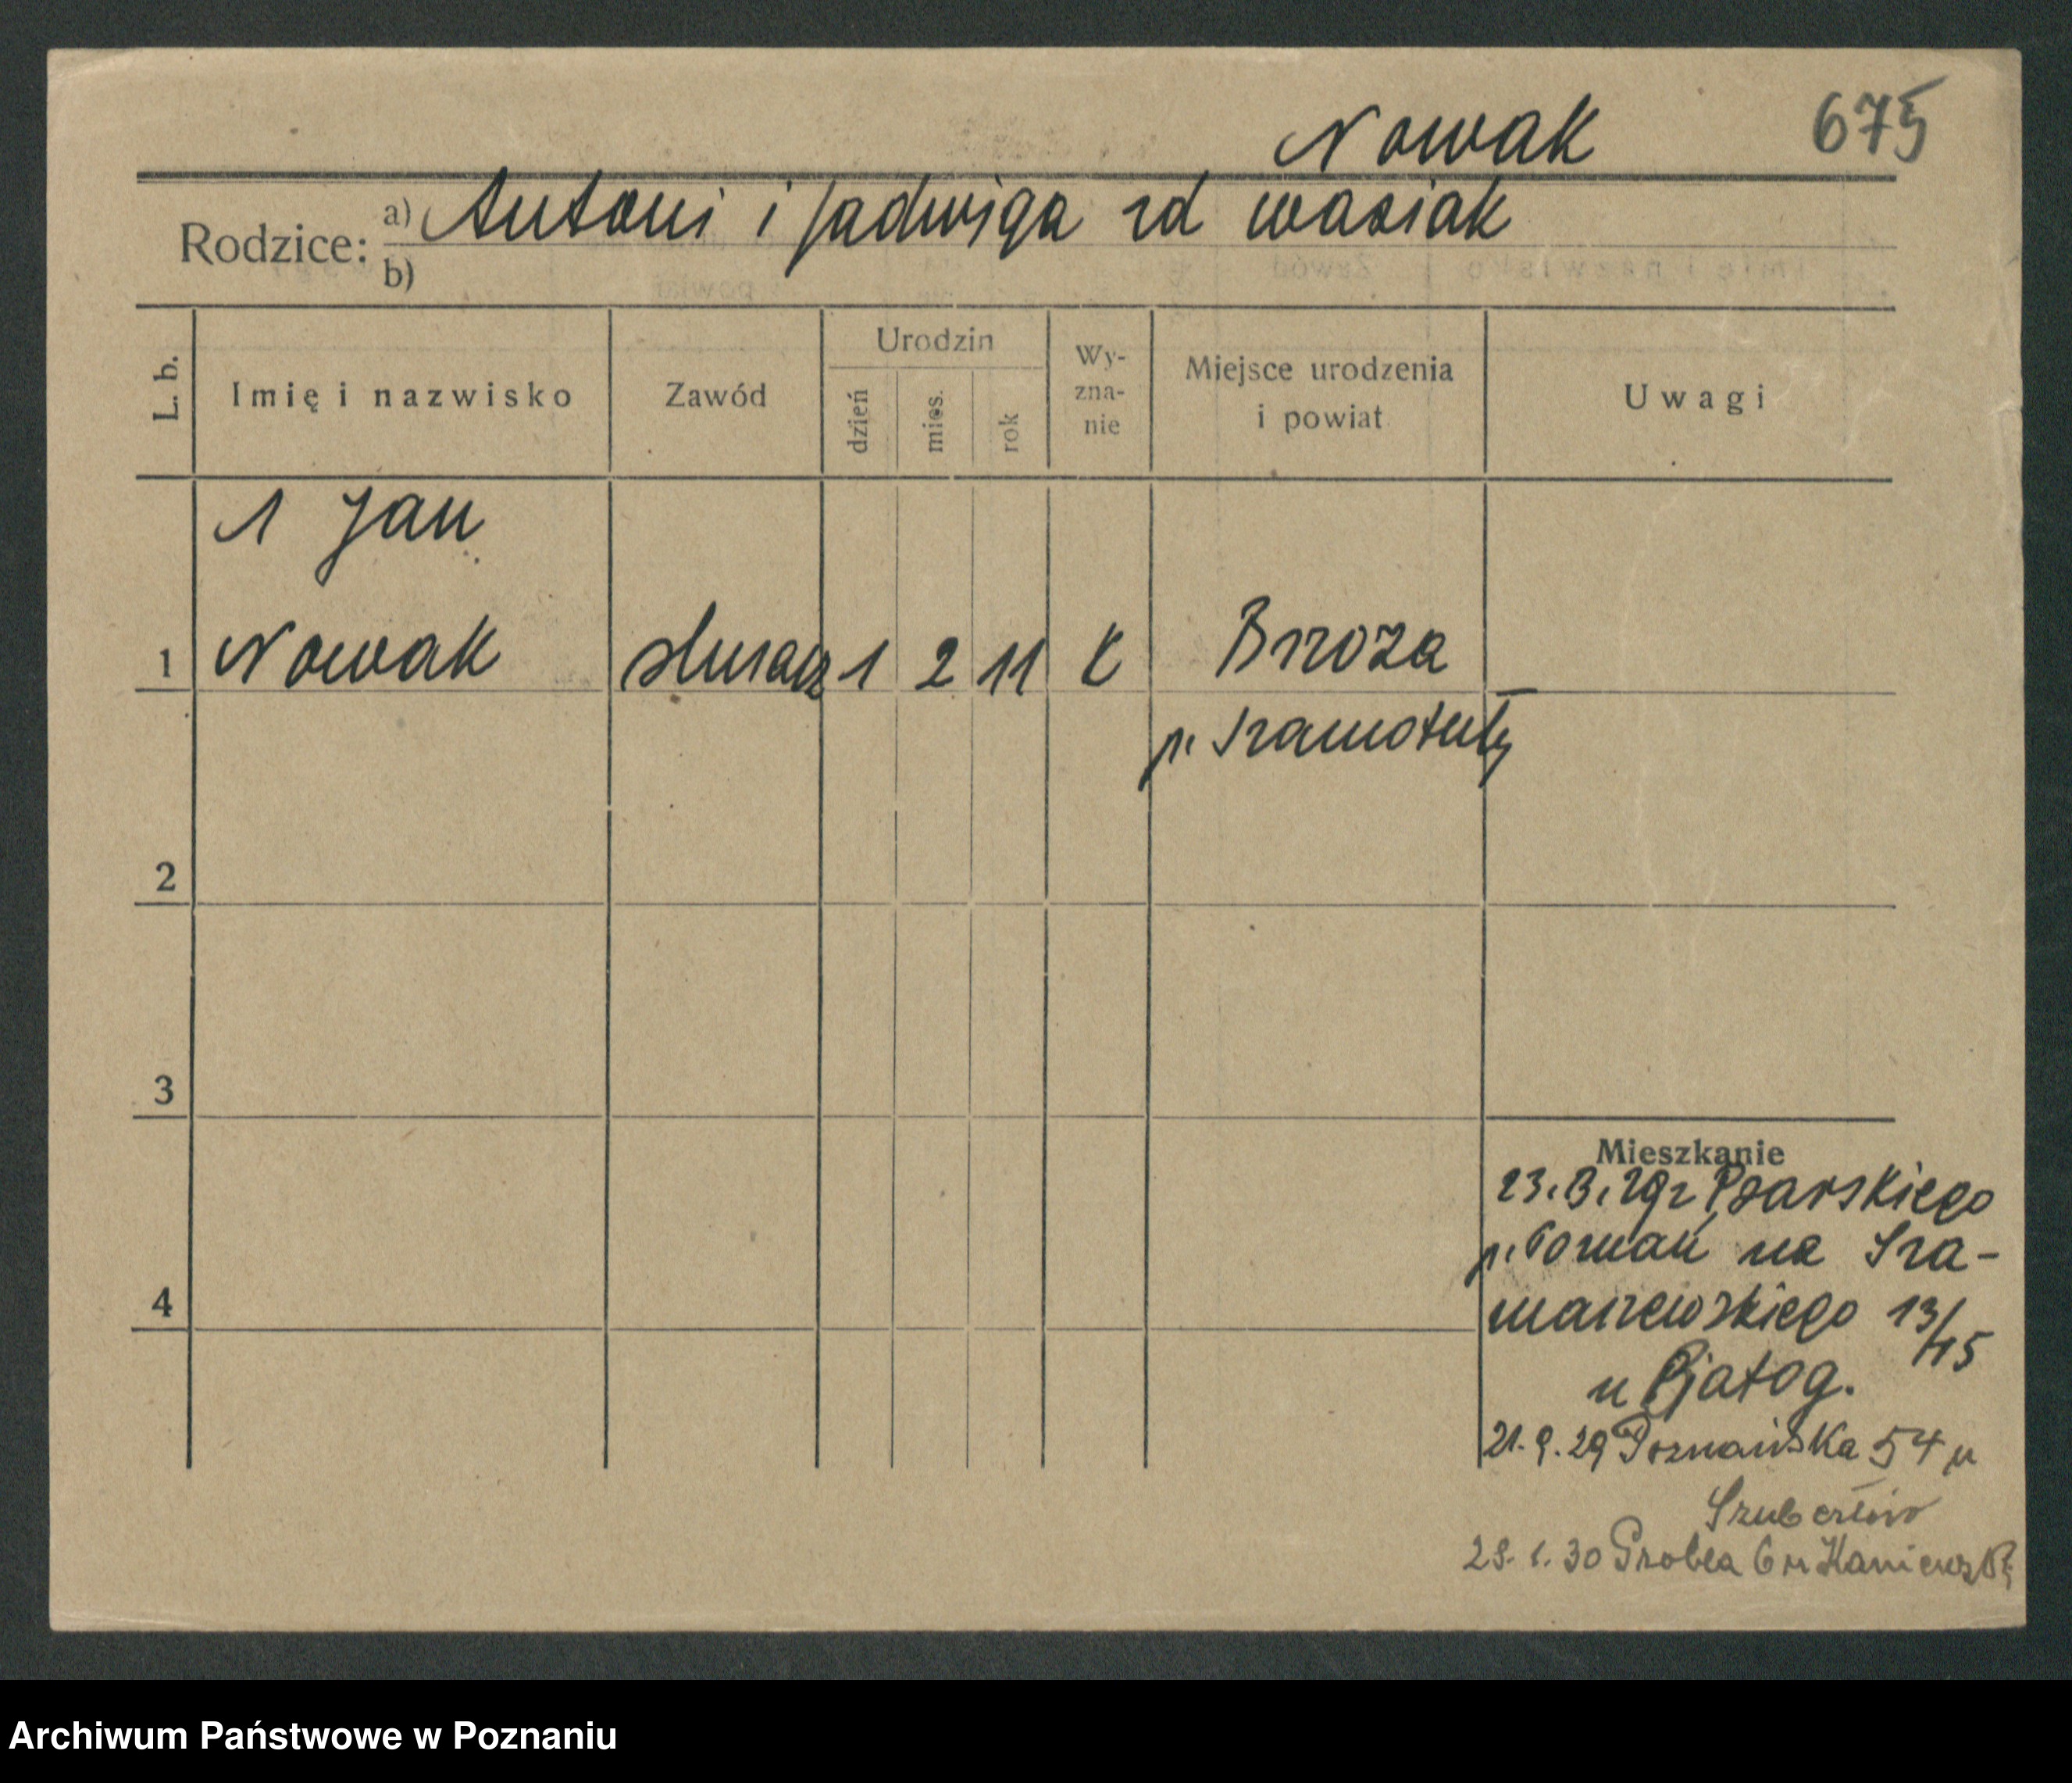 Nowak 675
Rodzice: a) Antoni i Jadwiga zd wasiak
b)
L. b. Imię i nazwisko Zawód Urodzin dzień mies. rok Wy-zna-nie Miejsce urodzenia i powiat Uwagi
1 Jan
1 Nowak ślusarz 1 2 11 k Brzoza
p. Szamotuły
2
3
Mieszkanie
23.3.29 z Psarskiego
p. Poznań na Sza-
4
marzewskiego 13/15
u
21.9.29 Poznańska 54 u
Szubertów
1.30 Grobla 6 u
Archiwum Państwowe w Poznaniu